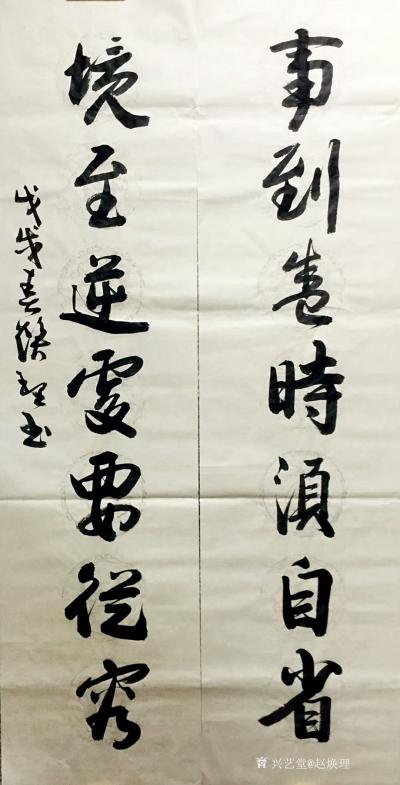 事到盛時須自省
境至逆處要從容
戊戌春焕理书
兴艺堂@赵焕理